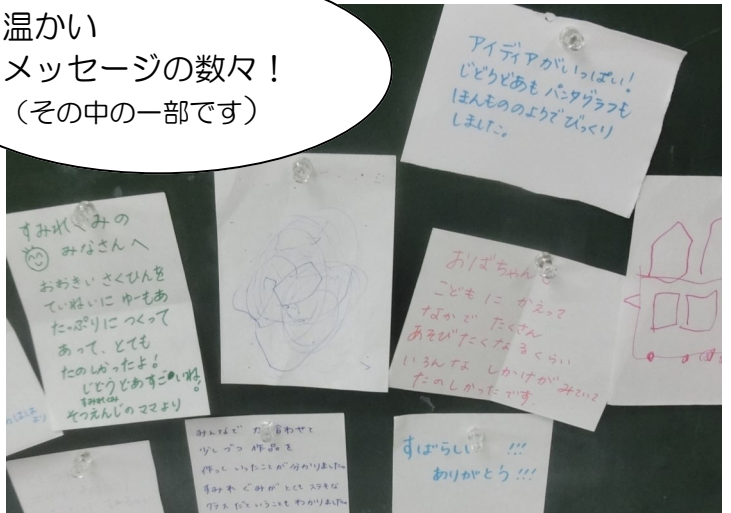 温かい
メッセージの数々！
（その中の一部です）
アイディアがいっぱい！
じどうどあも パンタグラフも
ほんもののようでびっくり
しました。
すみれぐみの
みなさんへ
おおきい さくひんを
ていねいに ゆーもあ
たっぷりに つくって
あって、とても
たのしかったよ！
じどうどあすごいね！
すみれぐみ
そつえんじのママより
おばちゃん
こどもに かえって
なかで たくさん
あそびたくなるくらい
いろんな しかけが みていて
たのしかったです。
みんなで 力 合わせて
少しづつ 作品を
作っていったことが分かりました。
すみれ ぐみが とても ステキな
クラスだということもわかりました。
すばらしい !!!
ありがとう !!!